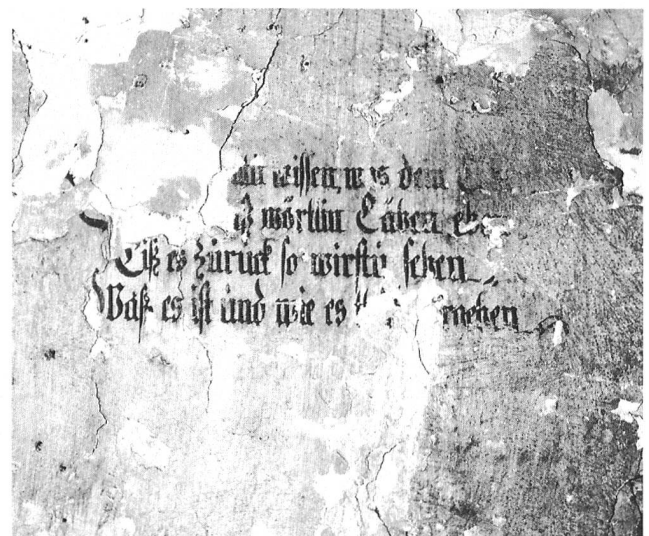 wissen, was dein
wörtlin Läben
Liß es zuruck so wirstu sehen
Waß es ist und wie es